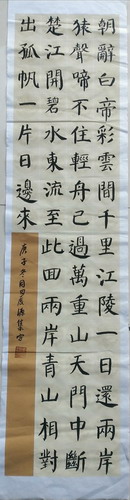 朝辭白帝彩雲間千里江陵一日還兩岸
猿聲啼不住輕舟已過萬重山天門中斷
楚江開碧水東流至此回兩岸青山相對
出孤帆一片日邊來
庚子冬月